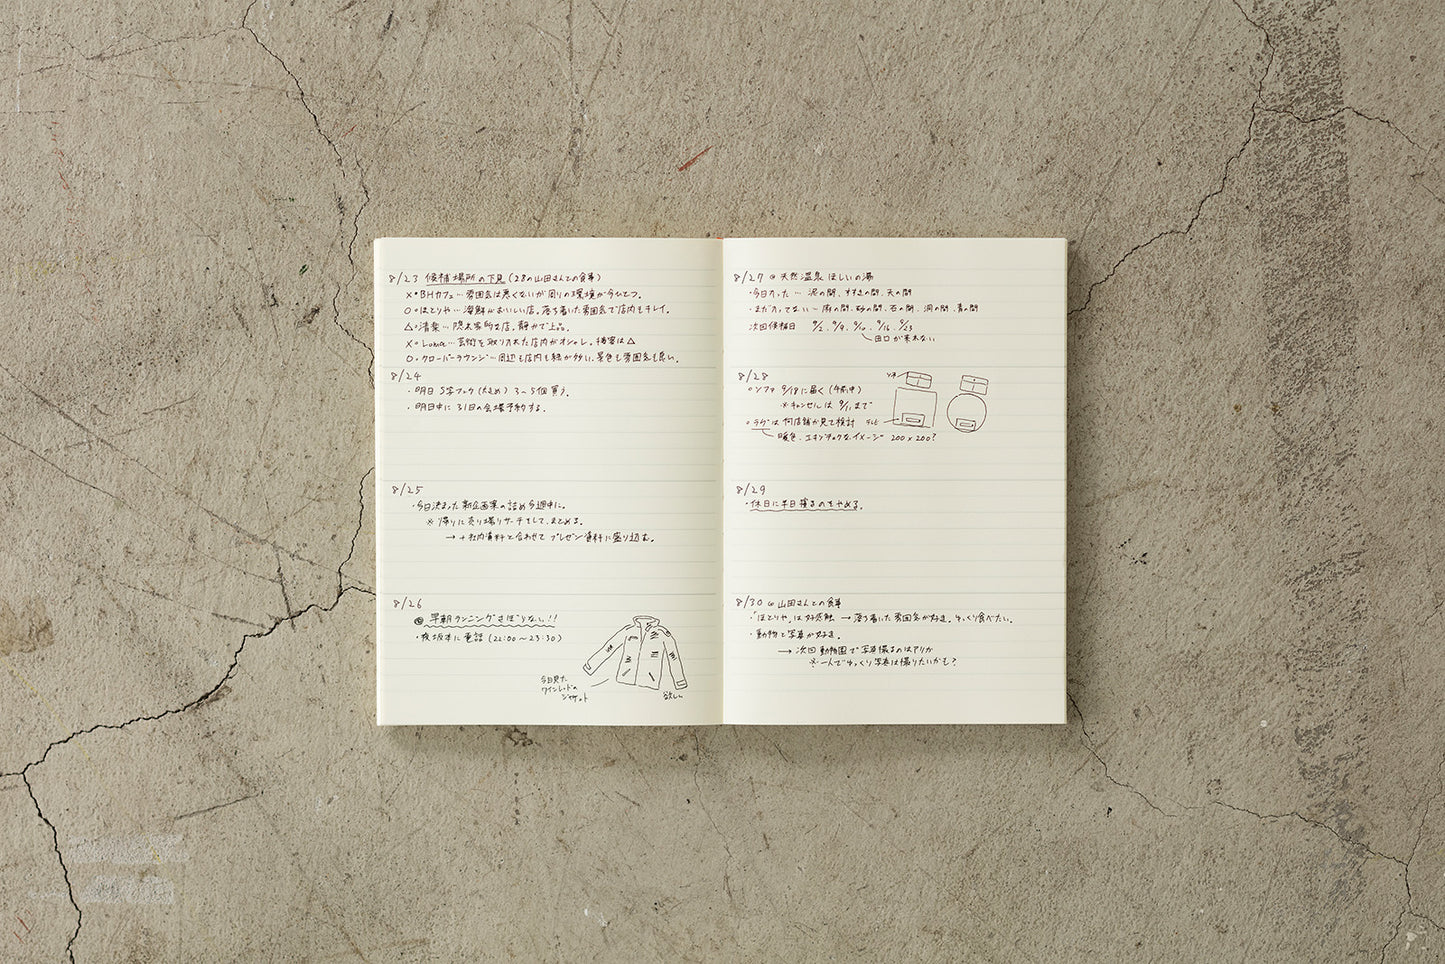 8/23 候補場所の下見(28の山田さんとの食事)
×・BHカフェ…雰囲気は悪くないが周りの環境が今ひとつ。
○・ほとりや…海鮮がおいしい店。落ち着いた雰囲気で店内もキレイ。
△・清楽…隠れ家的な店。静かで上品。
×・…芸術を取り入れた店内がオシャレ。接客は△
○・クローバーラウンジ…周辺も店内も緑が多い、景色も雰囲気も良い。
8/24
・明日 S字フック(大きめ) 3〜5個買う。
・明日中に31日の会場予約する。
8/25
・今日決まった新企画案の詰め今週中に。
※帰りに売り場リサーチをして、まとめる。
→ +社内資料と合わせて プレゼン資料に盛り込む。
8/26
◎ 早朝ランニングさぼらない!!
・夜坂本に電話(22:00〜23:30)
今日見た
ワインレッドの
ジャケット
欲しい
8/27 @天然温泉 ほしいの湯
・今日入った…泥の間、すすきの間、天の間
・まだ入ってない…雨の間、砂の間、石の間、洞の間、青の間
次回候補日 9/2、9/9、9/10、9/16、9/23
田口が来れない
8/28
○ソファ 9/18に届く(午前中)
※キャンセルは 9/11まで
○ラグは何店舗か見て検討
テレビ
暖色、エキゾチックなイメージ 200×200?
8/29
・休日に半日寝るのをやめる。
8/30 @山田さんとの食事
・「ほとりや」は好感触 → 落ち着いた雰囲気が好き。ゆっくり食べたい。
・動物と写真が好き。
→ 次回 動物園で写真撮るのはアリか
※一人でゆっくり写真は撮りたいかも?